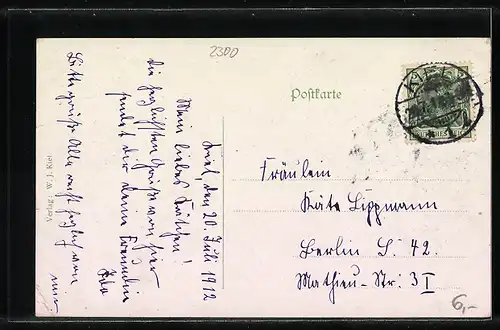 2300
Postkarte
Kiel, den 20. Juli 1912
Mein liebes Kätchen!
die herzlichsten Grüße von hier
sendet dir deine Freundin
Ida
Bitte grüße Alle recht herzlich von
mir
Verlag: W. J.
Fräulein
Käte Lippmann
Berlin S. 42.
Mathieu-Str: 3 I
6,-